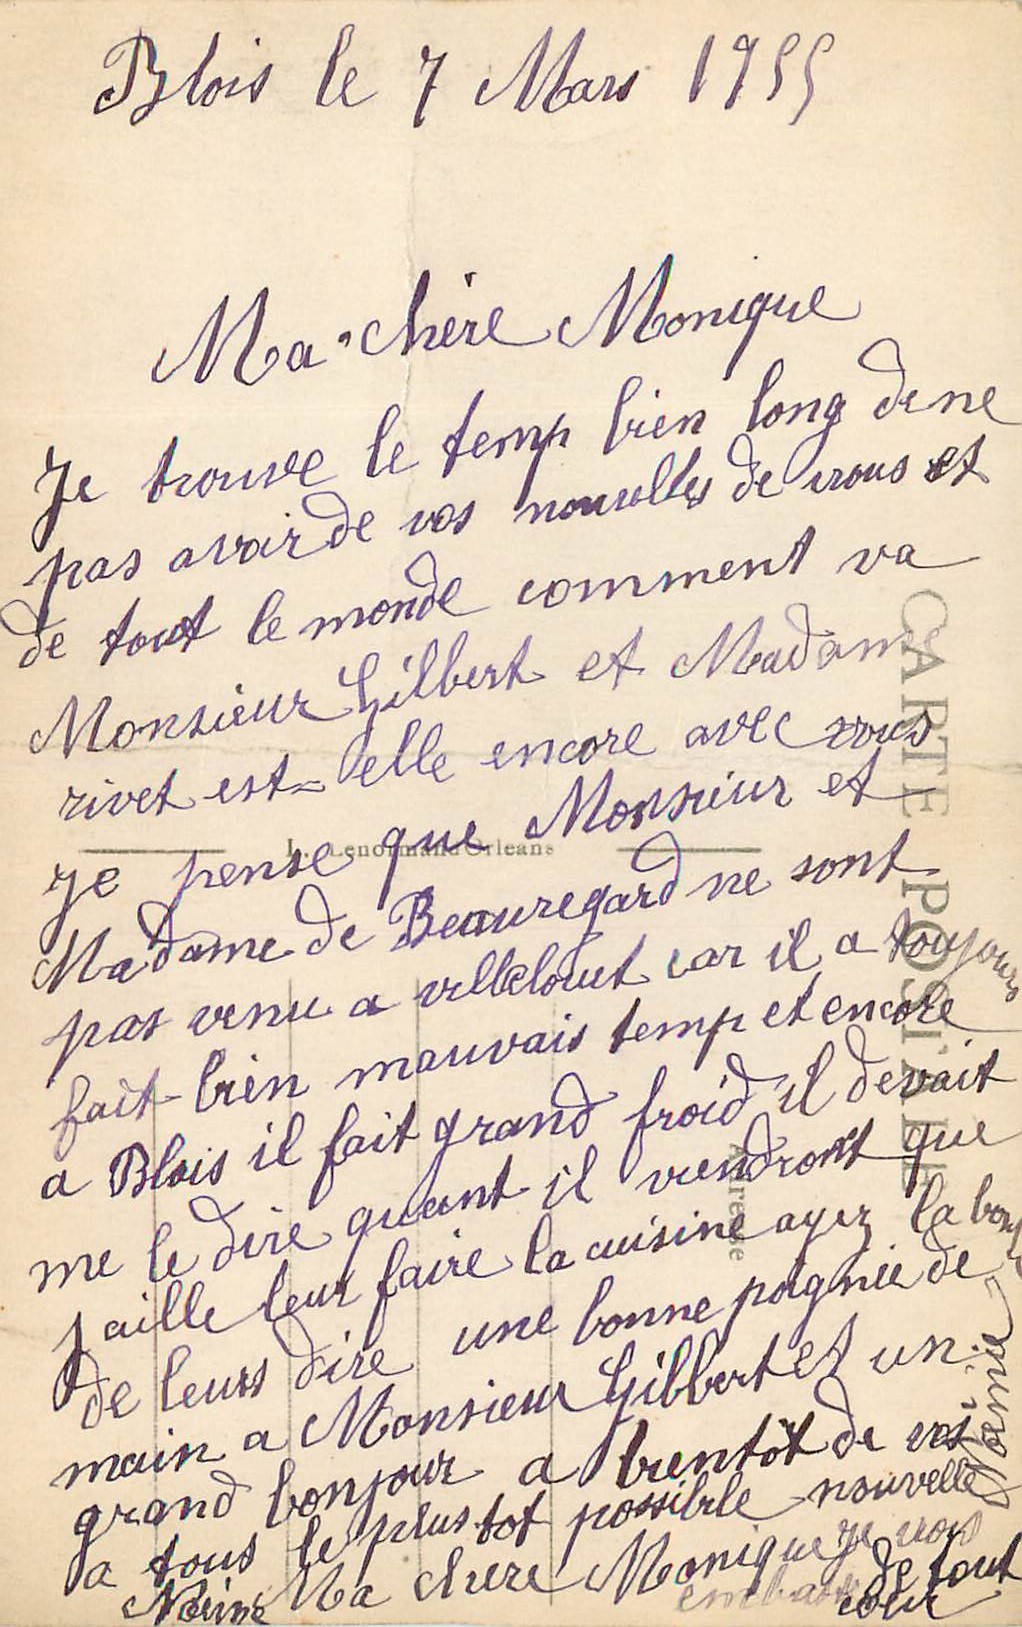 Blois le 7 Mars 1955
Ma chère Monique
Je trouve le temp bien long de ne
pas avoir de vos nouvelles de vous et
de tout le monde comment va
Monsieur Gilbert et Madame
rivet est-elle encore avec vous
je pense que Monsieur et
L. Lenormand Orleans
Madame de Beauregard ne sont
pas venu a villelouet car il a toujours
fait bien mauvais temp et encore
a Blois il fait grand froid il devait
me le dire quant il viendront que
j aille leur faire la cuisine ayez la
de leurs dire une bonne poignie de
main a Monsieur Gilbert et un
grand bonjour a bientôt de vos
a tous le plus tot possible nouvelle
Ma chere Monique je vous
embasse de tout
coeur
CARTE POSTALE
Adresse